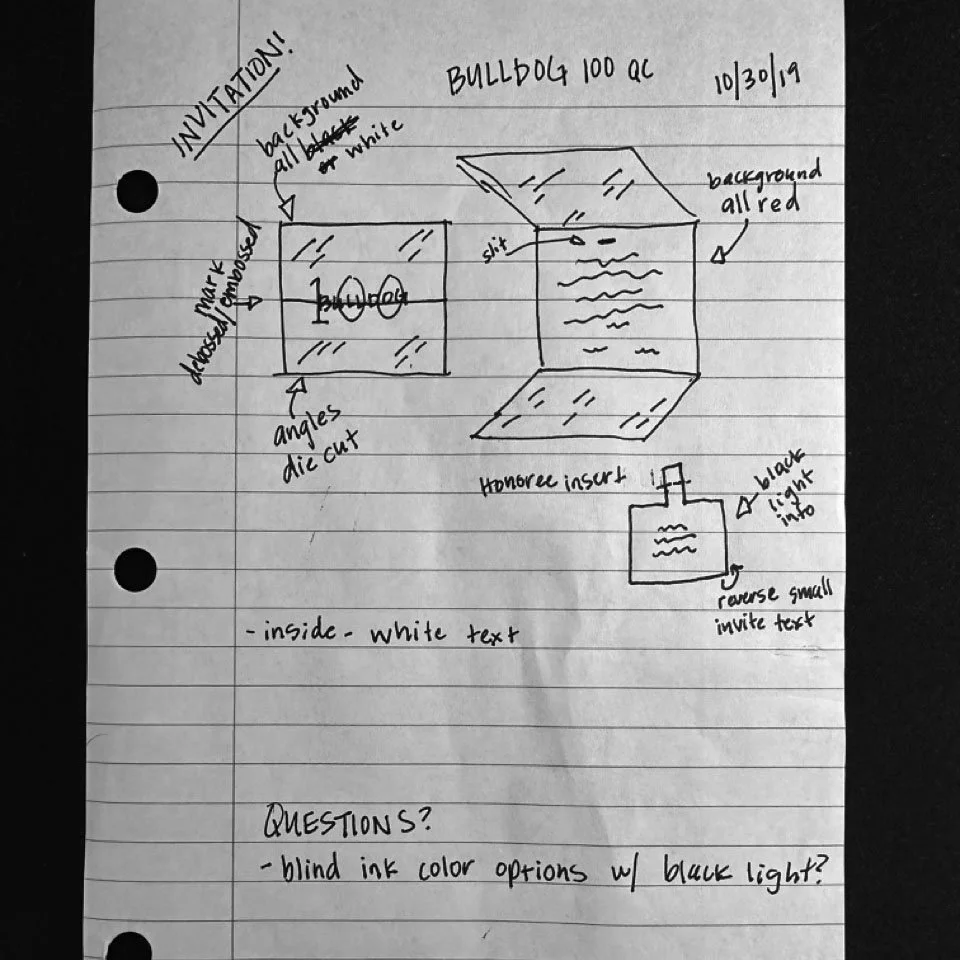 INVITATION!
BULLDOG 100 QC
10/30/19
background
all black
or white
mark
debossed/embossed
100
BULLDOG
angles
die cut
slit
background
all red
Honoree insert
black
light
into
reverse small
invite text
- inside - white text
QUESTIONS?
- blind ink color options w/ black light?